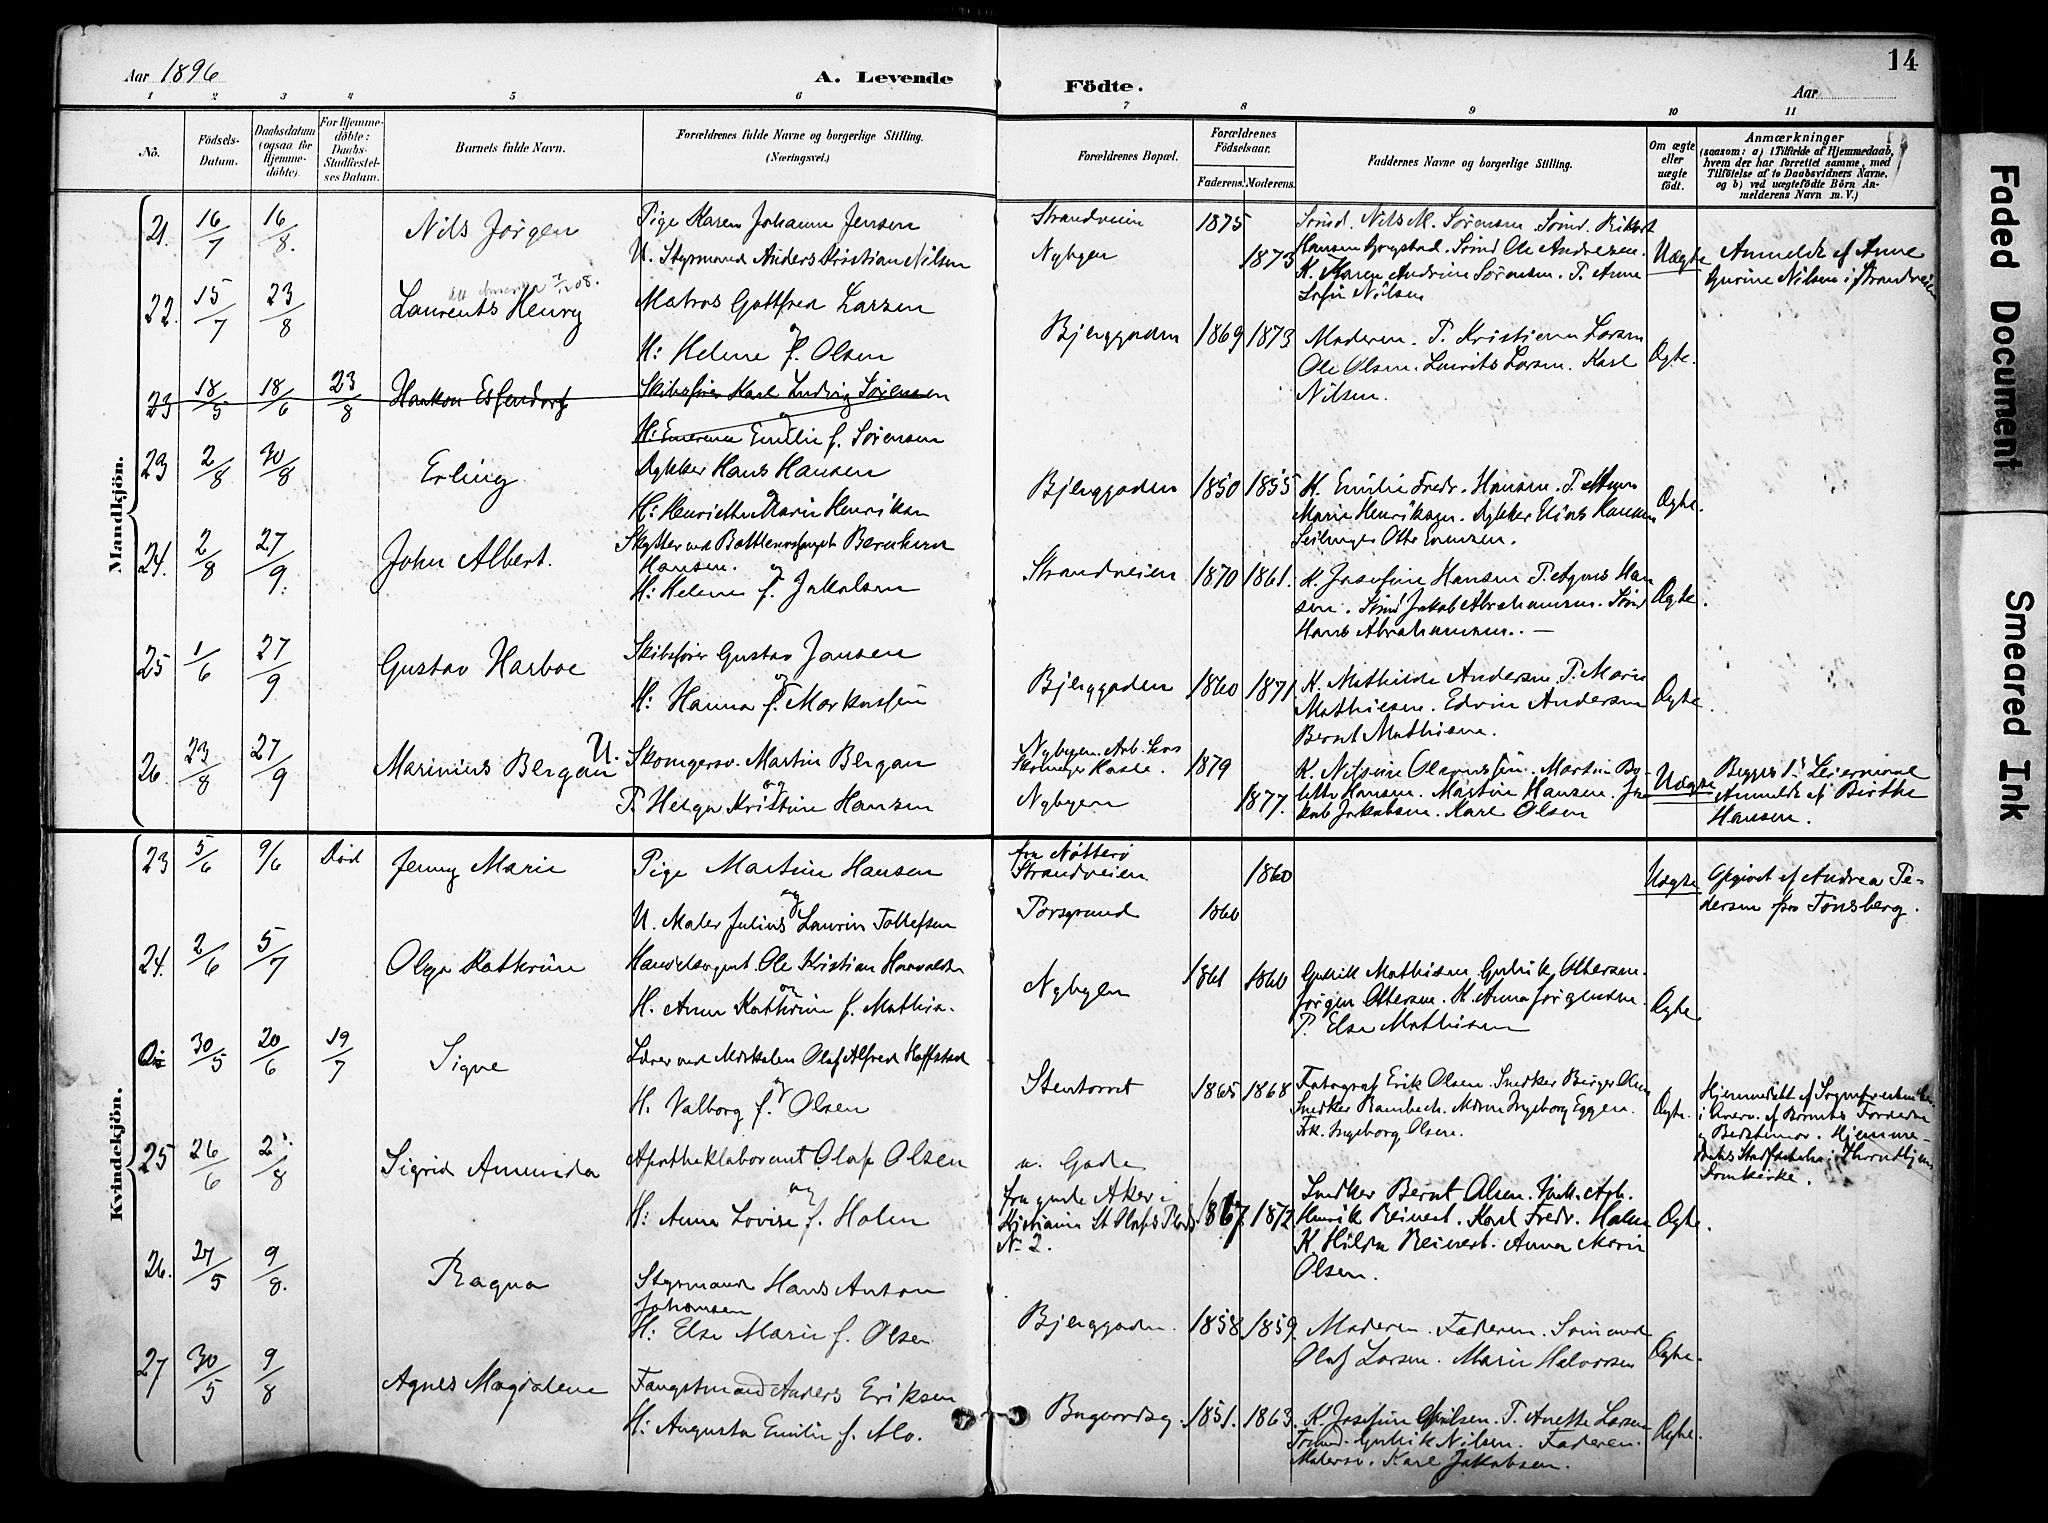 14
Aar 1896
A. Levende
Födte.
Aar
1 2 3 4 5 6 7 8 9 10 11
No.
Födsels-
Datum.
Daabsdatum
(ogsaa for
Hjemme-
döbte).
For Hjemme-
döbte:
Daabs-
Stadfæstel-
ses Datum.
Barnets fulde Navn.
Forældrenes fulde Navne og borgerlige Stilling.
(Næringsvei.)
Forældrenes Bopæl.
Forældrenes
Födselsaar.
Faderens. Moderens.
Faddernes Navne og borgerlige Stilling.
Om ægte
eller
uægte
födt.
Anmærkninger
(saasom: a) i Tilfælde af Hjemmedaab,
hvem der har forrettet samme, med
Tilföielse af to Daabsvidners Navne,
og b) ved uægtefödte Börn An-
melderens Navn m. V.)
Mandkjön.
21. 16/7 16/8. Nils Jørgen
Pige Karen Johanne Jensen
U. Styrmand Anders Kristian Nilsen
Strandveien 1875
Nybyen 1873
Sømd. Nils M. Sørensen. Sømd. Rikart
Hansen Gogstad. Sømd Ole Andresen.
K. Maren Andrine Sørensen. P. Anne
Sofie Nilsen
Uægte
Anmeldt af Anne
Gurine Nilsen i Strandveien
22. 15/7 23/8 Laurents Henry
Matros Gottfred Larsen
og
H: Helene f. Olsen
Bjerggaden 1869 1873
Moderen. P. Kristiane Larsen
Ole Olsen. Laurits Larsen. Karl
Nilsen.
Ægte.
23 18/5 18/6 23/8 Haakon Esfendorf
Skibsfører Karl Ludvig Sørensen
og
H: Emerense Emilie f. Sørensen
23 2/8 30/8 Erling
Dykker Hans Hansen
og
H: Henriette Marie Henriksen
Bjerggaden 1850 1855
K. Emilie Fredr. Hansen. P. Anna
Marie Henriksen. Dykker Elias Hansen
Seilmager Otto Evensen.
Ægte.
24. 2/8 27/9. John Albert.
Skytter ved Bottlenosefanget Bernhard
Hansen.
og
H: Helene f. Jakobsen
Strandveien 1870 1861.
K. Josefine Hansen P. Agnes Han
sen. Sømd Jakob Abrahamsen. Sømd
Hans Abrahamsen. —
Ægte.
25 1/6 27/9 Gustav Harboe
Skibsfører Gustav Jansen
og
H: Hanna f. Markussen
Bjerggaden 1860 1871.
K. Mathilde Andersen P. Marie
Mathisen. Edvin Andersen
Bernt Mathisen.
Ægte.
26. 23/8 27/9 Marinius Bergan
U. Skomgersv. Martin Bergan
og
P. Helga Kristine Hansen
Nybyen. Arb. hos
Skomager Kasle. 1879
Nybyen 1877.
K. Nilsine Olaussen. Martin By-
litte Hansen. Martin Hansen. Ja
kob Jakobsen. Karl Olsen
Uægte
Begges 1ste Leiermaal
Anmeldt af Birthe
Hansen.
Kvindekjön.
23 5/6 9/6 Død Jenny Marie
Pige Martine Hansen
og
U. Maler Julius Laurin Tollefsen
fra Nøtterø
Strandveien 1860
Porsgrund 1860
Uægte
Opgivet af Andrea Pe-
dersen fra Tønsberg.
24. 2/6 5/7 Olga Kathrine
Handelsagent Ole Kristian
og
H. Anne Kathrine f. Mathis.
Nybyen 1861 1860
Gulrik Mathisen Gulrik Ottersen.
Jørgen Ottersen. K. Anna Jørgensen.
P. Else Mathisen
Ægte.
30/5 20/6 19/7 Signe
Lærer ved Mskolen Olaf Alfred Hoffstad
og
H. Valborg f. Olsen
Stentorvet 1865 1868
Fotograf Erik Olsen. Snedker Birger Olsen
Snedker Bambech. Mdme Ingeborg Eggen.
Frk. Ingeborg Olsen.
Ægte.
Hjemmedøbt af Sognepresten her
i Overv. af Barnets Forældre
og Bedstemor. Hjemme-
daabs Stadfæstelse i Throndhjems
Domkirke.
25 26/6 2/8 Sigrid Amunda
Apotheklaborant Olaf Olsen
og
H: Anna Lovise f. Holm
n. Gade
fra gamle Aker i
Kristiania St Olafs Plads
No 2. 1867. 1872
Snedker Bernt Olsen.
Henrik Reinert. Karl Fredr. Holm
K. Hilda Reinert. Anna Marie
Olsen.
Ægte.
26. 27/5 9/8. Ragna
Styrmand Hans Anton
Johansen
H: Else Marie f. Olsen
Bjerggaden. 1858 1859.
Moderen. Faderen. Sømand
Olaf Larsen. Marie Halvorsen
Ægte.
27 30/5 9/8 Agnes Magdalene
Fangstmand Anders Eriksen
H: Augusta Emilie f. Mo.
Bugaardsg. 1851. 1863.
K. Josefine Nilsen. P. Anette Larsen
Tømmd. Gulrik Nilsen. Faderen.
Malersv. Karl Jakobsen.
Ægte.
Faded Document
Smeared Ink